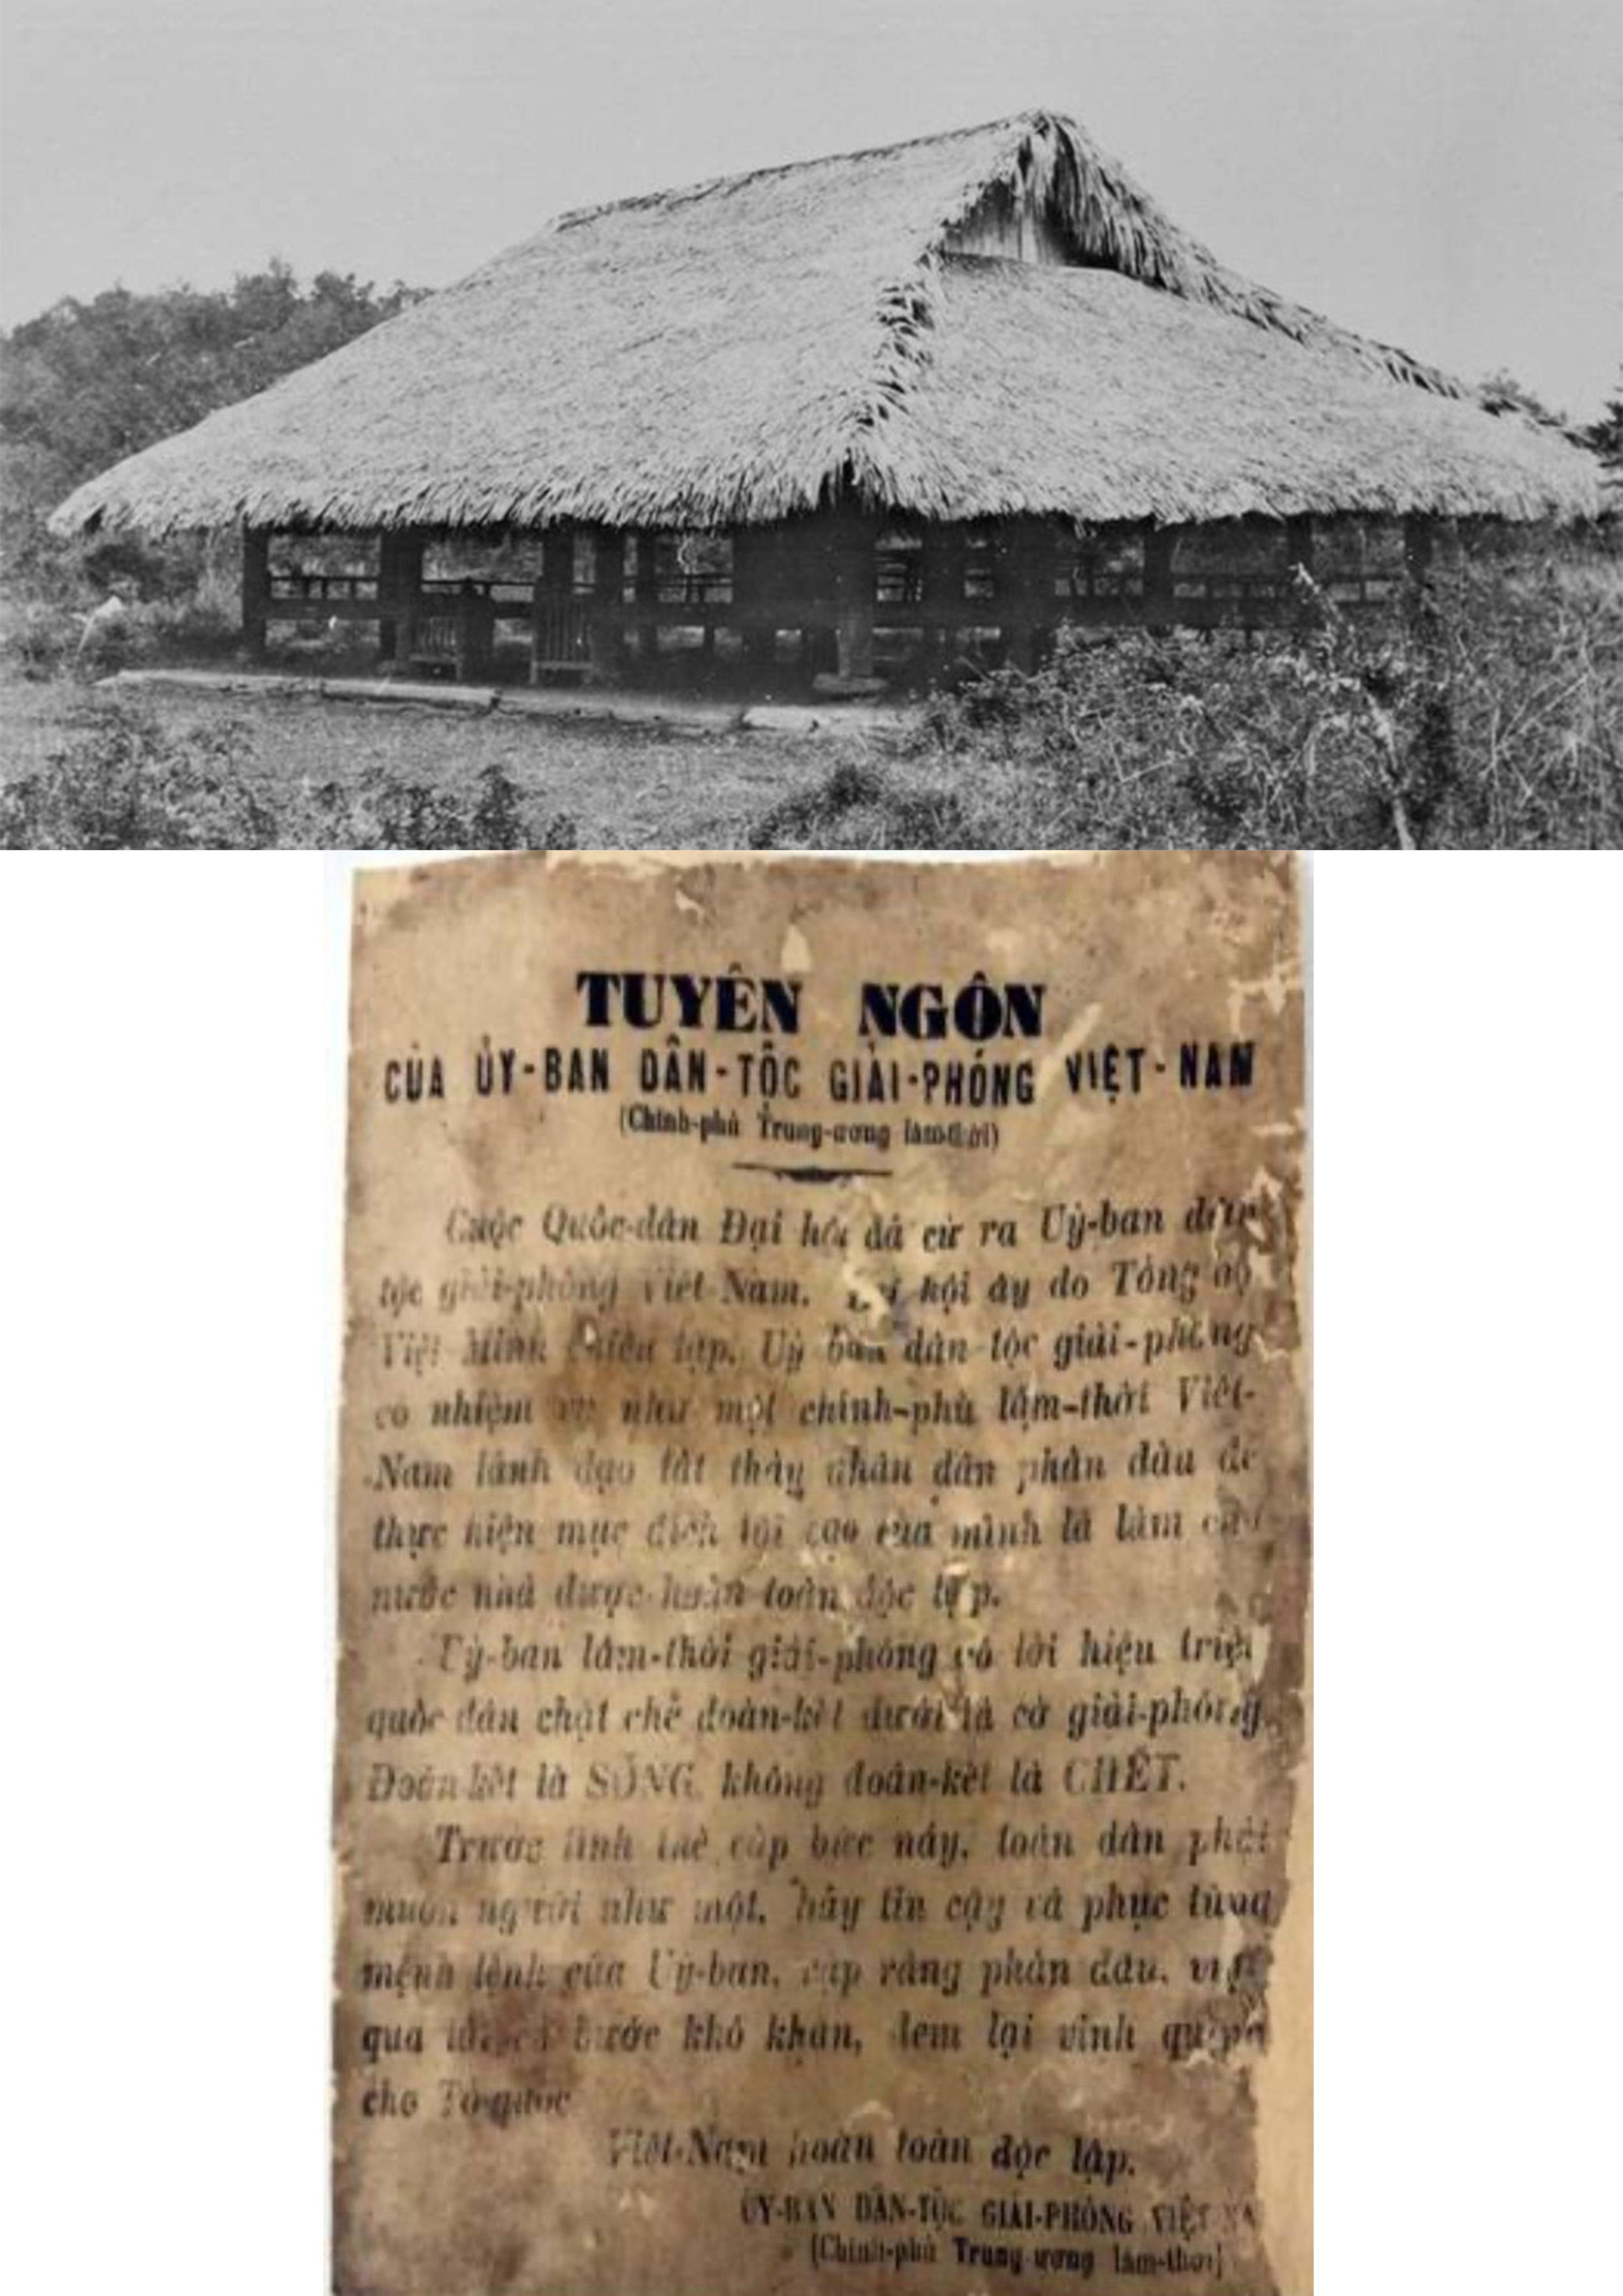 TUYÊN NGÔN
CỦA ỦY-BAN DÂN-TỘC GIẢI-PHÓNG VIỆT-NAM
(Chính-phủ Trung-ương lâm-thời)
Cuộc Quốc-dân Đại hội đã cử ra Uỷ-ban dân
tộc giải-phóng Việt-Nam. Đại hội ấy do Tổng bộ
Việt Minh triệu tập. Uỷ ban dân tộc giải-phóng
có nhiệm vụ như một chính-phủ lâm-thời Việt-
Nam lãnh đạo tất thảy nhân dân phấn đấu để
thực hiện mục đích tối cao của mình là làm cho
nước nhà được hoàn toàn độc lập.
Uỷ-ban lâm-thời giải-phóng có lời hiệu triệu
quốc dân chặt chẽ đoàn-kết dưới lá cờ giải-phóng
Đoàn-kết là SỐNG, không đoàn-kết là CHẾT.
Trước tình thế cấp bức này, toàn dân phải
muôn người như một, hãy tin cậy và phục tùng
mệnh lệnh của Uỷ-ban, ráng phấn đấu, vượt
qua bước khó khăn, đem lại vinh quang
cho Tổ-quốc
Việt-Nam hoàn toàn độc lập.
ỦY-BAN DÂN-TỘC GIẢI-PHÓNG VIỆT NA
(Chính-phủ Trung-ương lâm-thời)